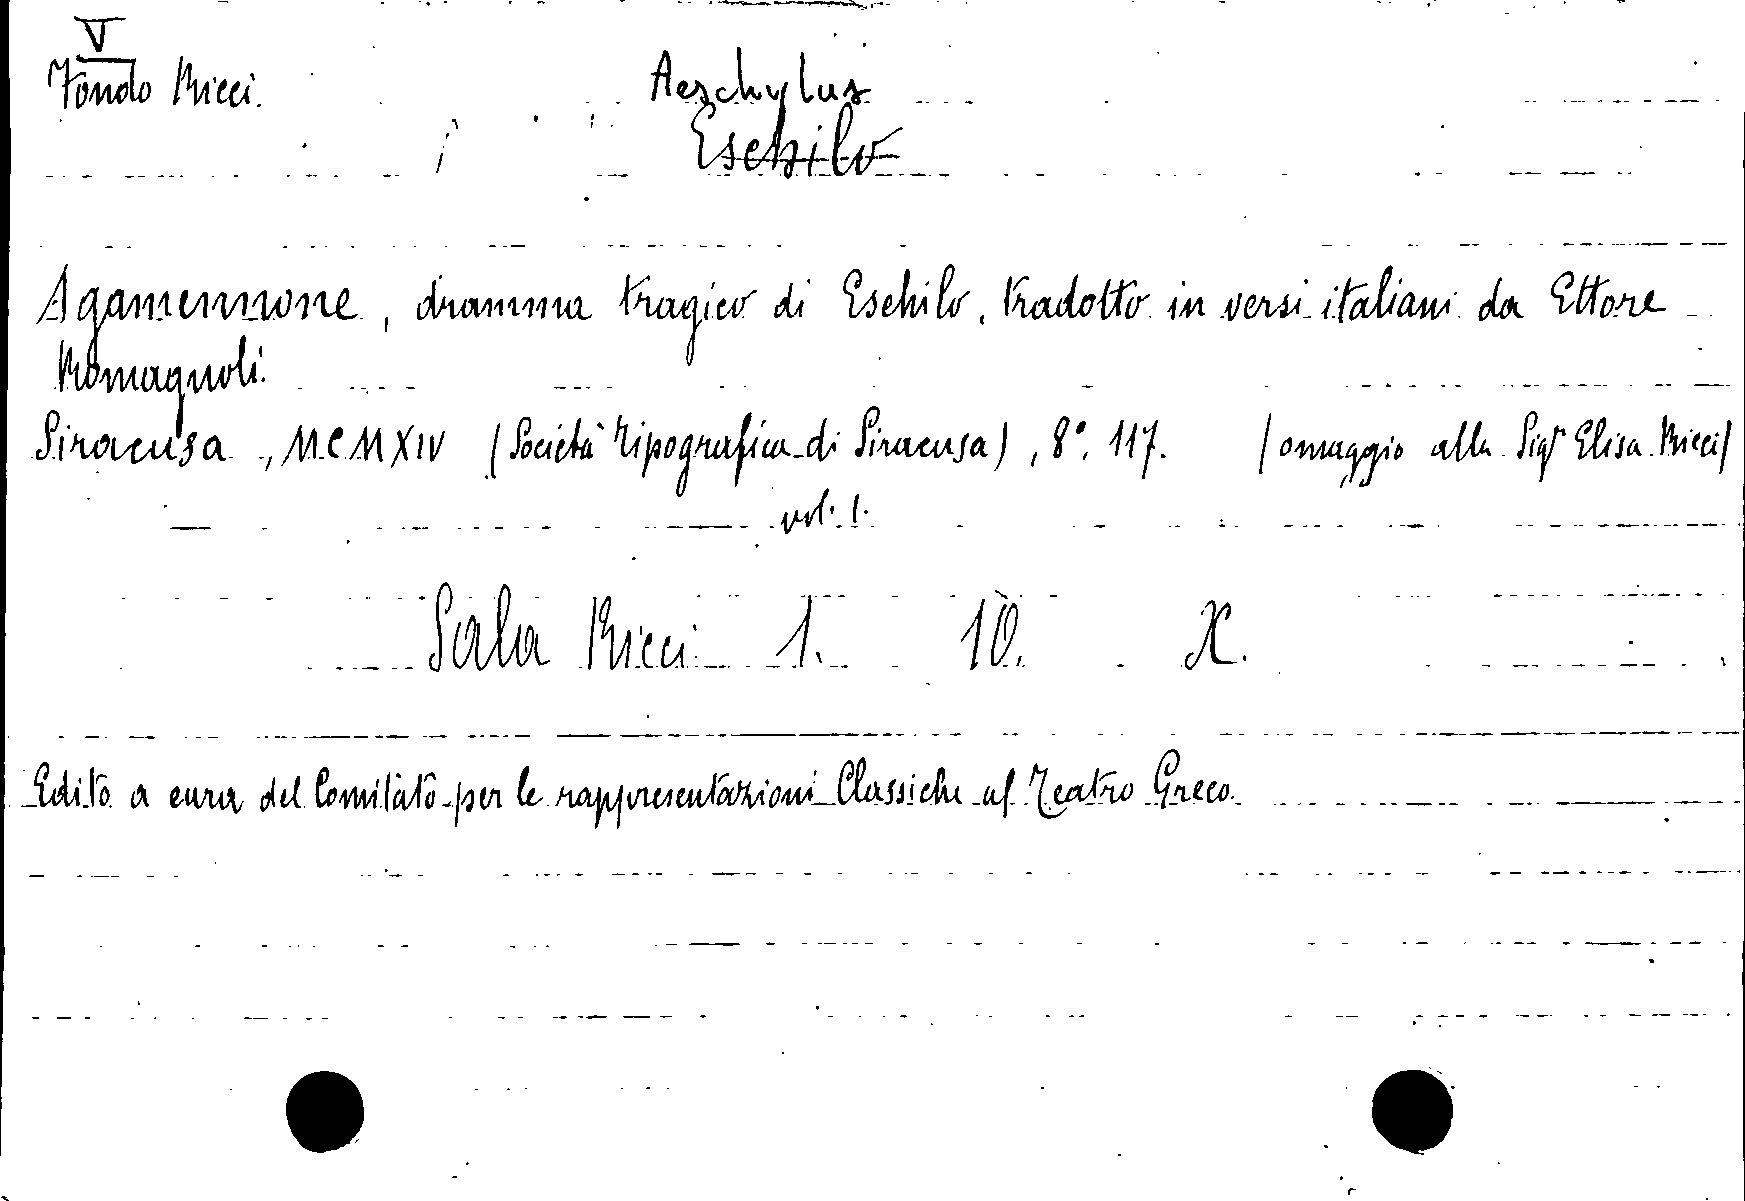 V
Fondo Ricci.
Aeschylus
Eschilo
Agamennone, dramma tragico di Eschilo, tradotto in versi italiani da Ettore
Romagnoli.
Siracusa, MCMXIV (Società Tipografica di Siracusa), 8°. 117. (omaggio alla Sigra Elisa Ricci)
vol. 1.
Sala Ricci 1. 10. X.
Edito a cura del Comitato per le rappresentazioni Classiche al Teatro Greco.